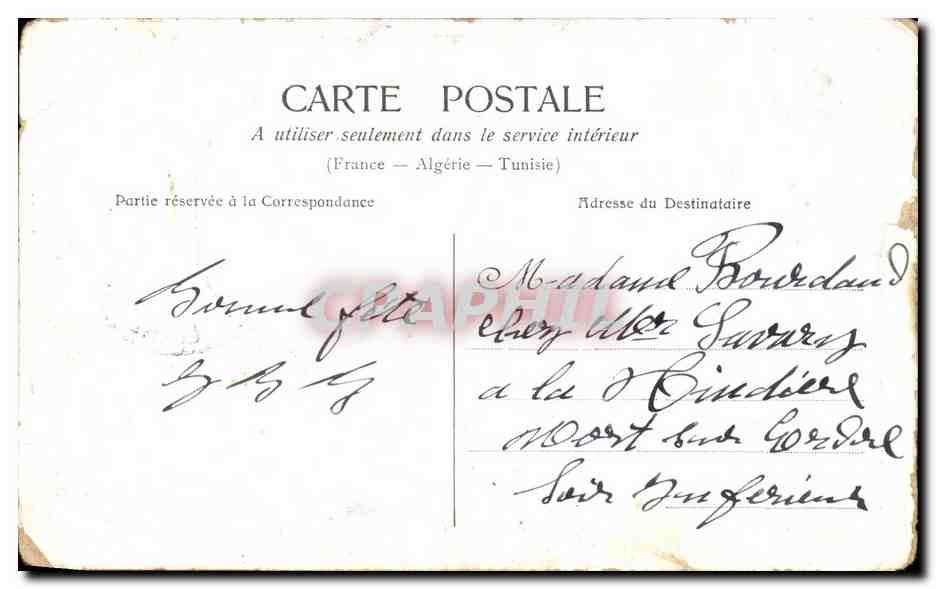 CARTE POSTALE
A utiliser seulement dans le service intérieur
(France — Algérie — Tunisie)
Partie réservée à la Correspondance
Adresse du Destinataire
Bonne fête
Madame Bourdaud
chez Mer Savary
a la
Nort sur Erdre
Loir Inferieur
CPAPHIL